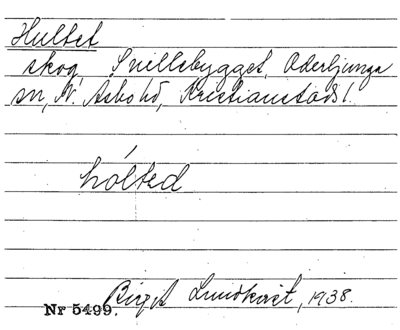 Hultet
skog, Snillebygget, Oderljunga
sn, N. Åsbo hd, Kristianstads l.
hólted
Birgit Lundkvist, 1938.
Nr 5499.